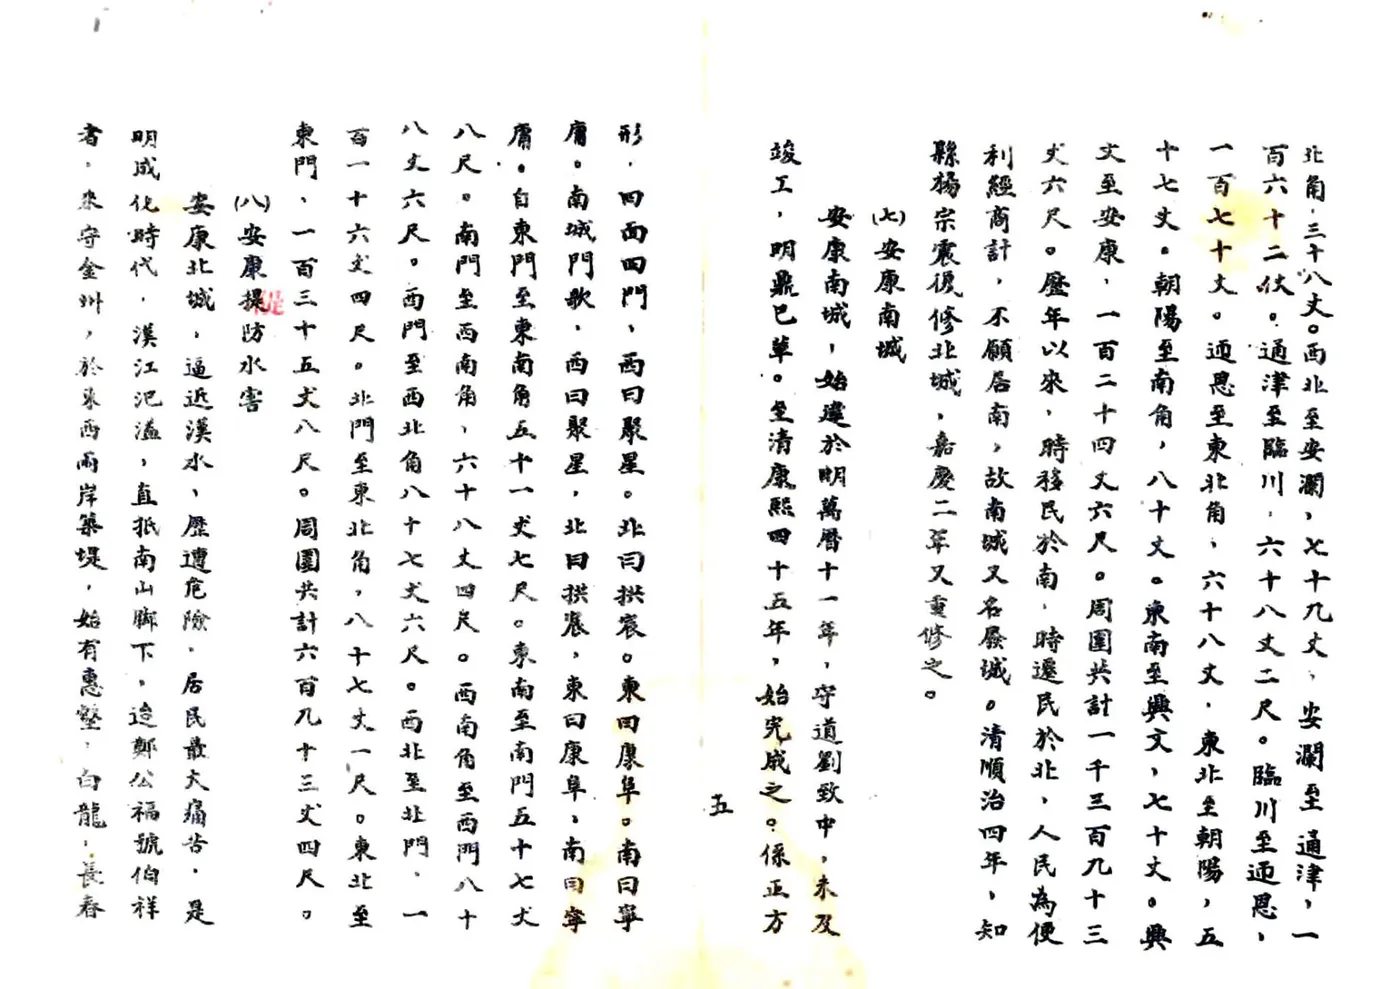 北角，三十八丈。西北至安瀾，七十九丈，安瀾至通津，一
百六十二伏。通津至臨川，六十八丈二尺。臨川至迊恩，
一百七十丈。迊恩至東北角，六十八丈，東北至朝陽，五
十七丈。朝陽至南角，八十丈。東南至興文，七十丈。興
文至安康，一百二十四丈六尺。周圍共計一千三百九十三
丈六尺。歷年以來，時移民於南，時遷民於北，人民為便
利經商計，不願居南，故南城又名廢城。清順治四年，知
縣楊宗震復修北城，嘉慶二年又重修之。
㈦安康南城
安康南城，始建於明萬曆十一年，守道劉致中，未及
竣工，明鼎已革。至清康熙四十五年，始完成之。係正方
五
形，四面四門，西曰聚星。北曰拱宸。東曰康阜。南曰寧
庸。南城門歌，西曰聚星，北曰拱宸，東曰康阜，南曰寧
庸。自東門至東南角五十一丈七尺。東南至南門五十七丈
八尺。南門至西南角，六十八丈四尺。西南角至西門八十
八丈六尺。西門至西北角八十七丈六尺。西北至北門，一
百一十六丈四尺。北門至東北角，八十七丈一尺。東北至
東門，一百三十五丈八尺。周圍共計六百九十三丈四尺。
㈧安康提防水害
堤
安康北城，逼近漢水，歷遭危險，居民最大痛苦，是
明成化時代，漢江氾溢，直抵南山脚下，迨鄭公福號伯祥
者，來守金州，於東西兩岸築堤，始有惠壑，白龍，長春